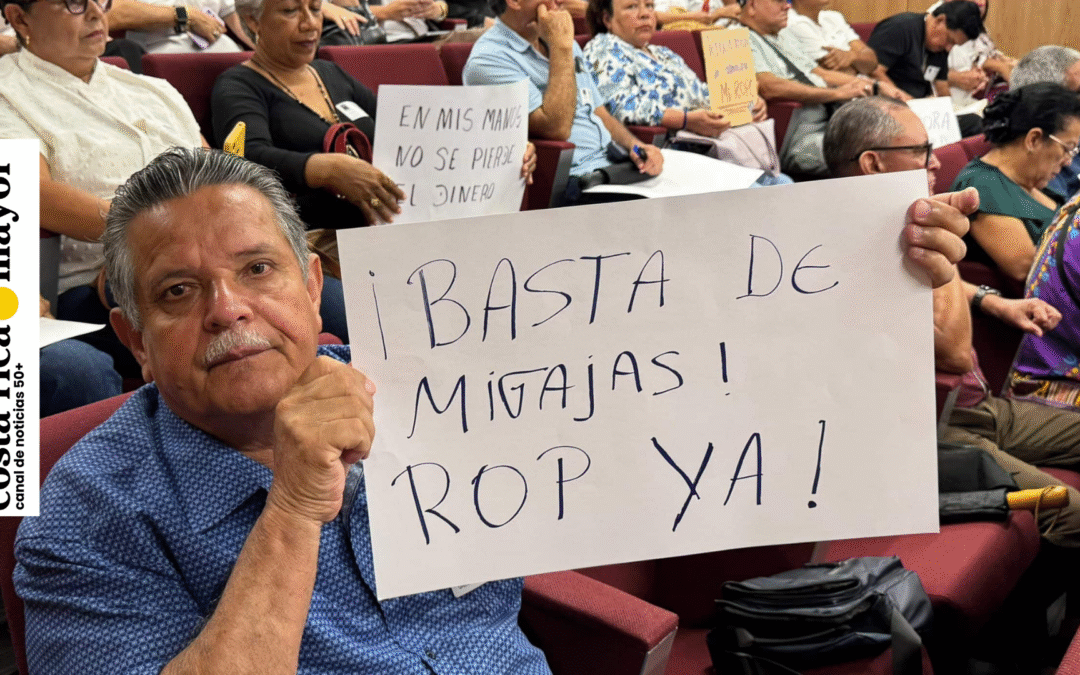 costa rica mayor
canal de noticias 50+
EN MIS MANOS
NO SE PIERDE
EL DINERO
MI ROP
¡BASTA DE
MIGAJAS!
ROP YA!